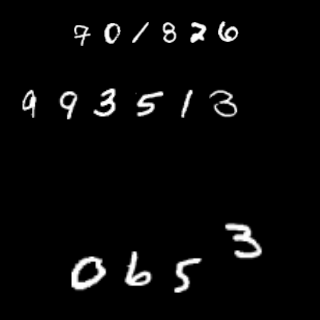 701826
993513
0653